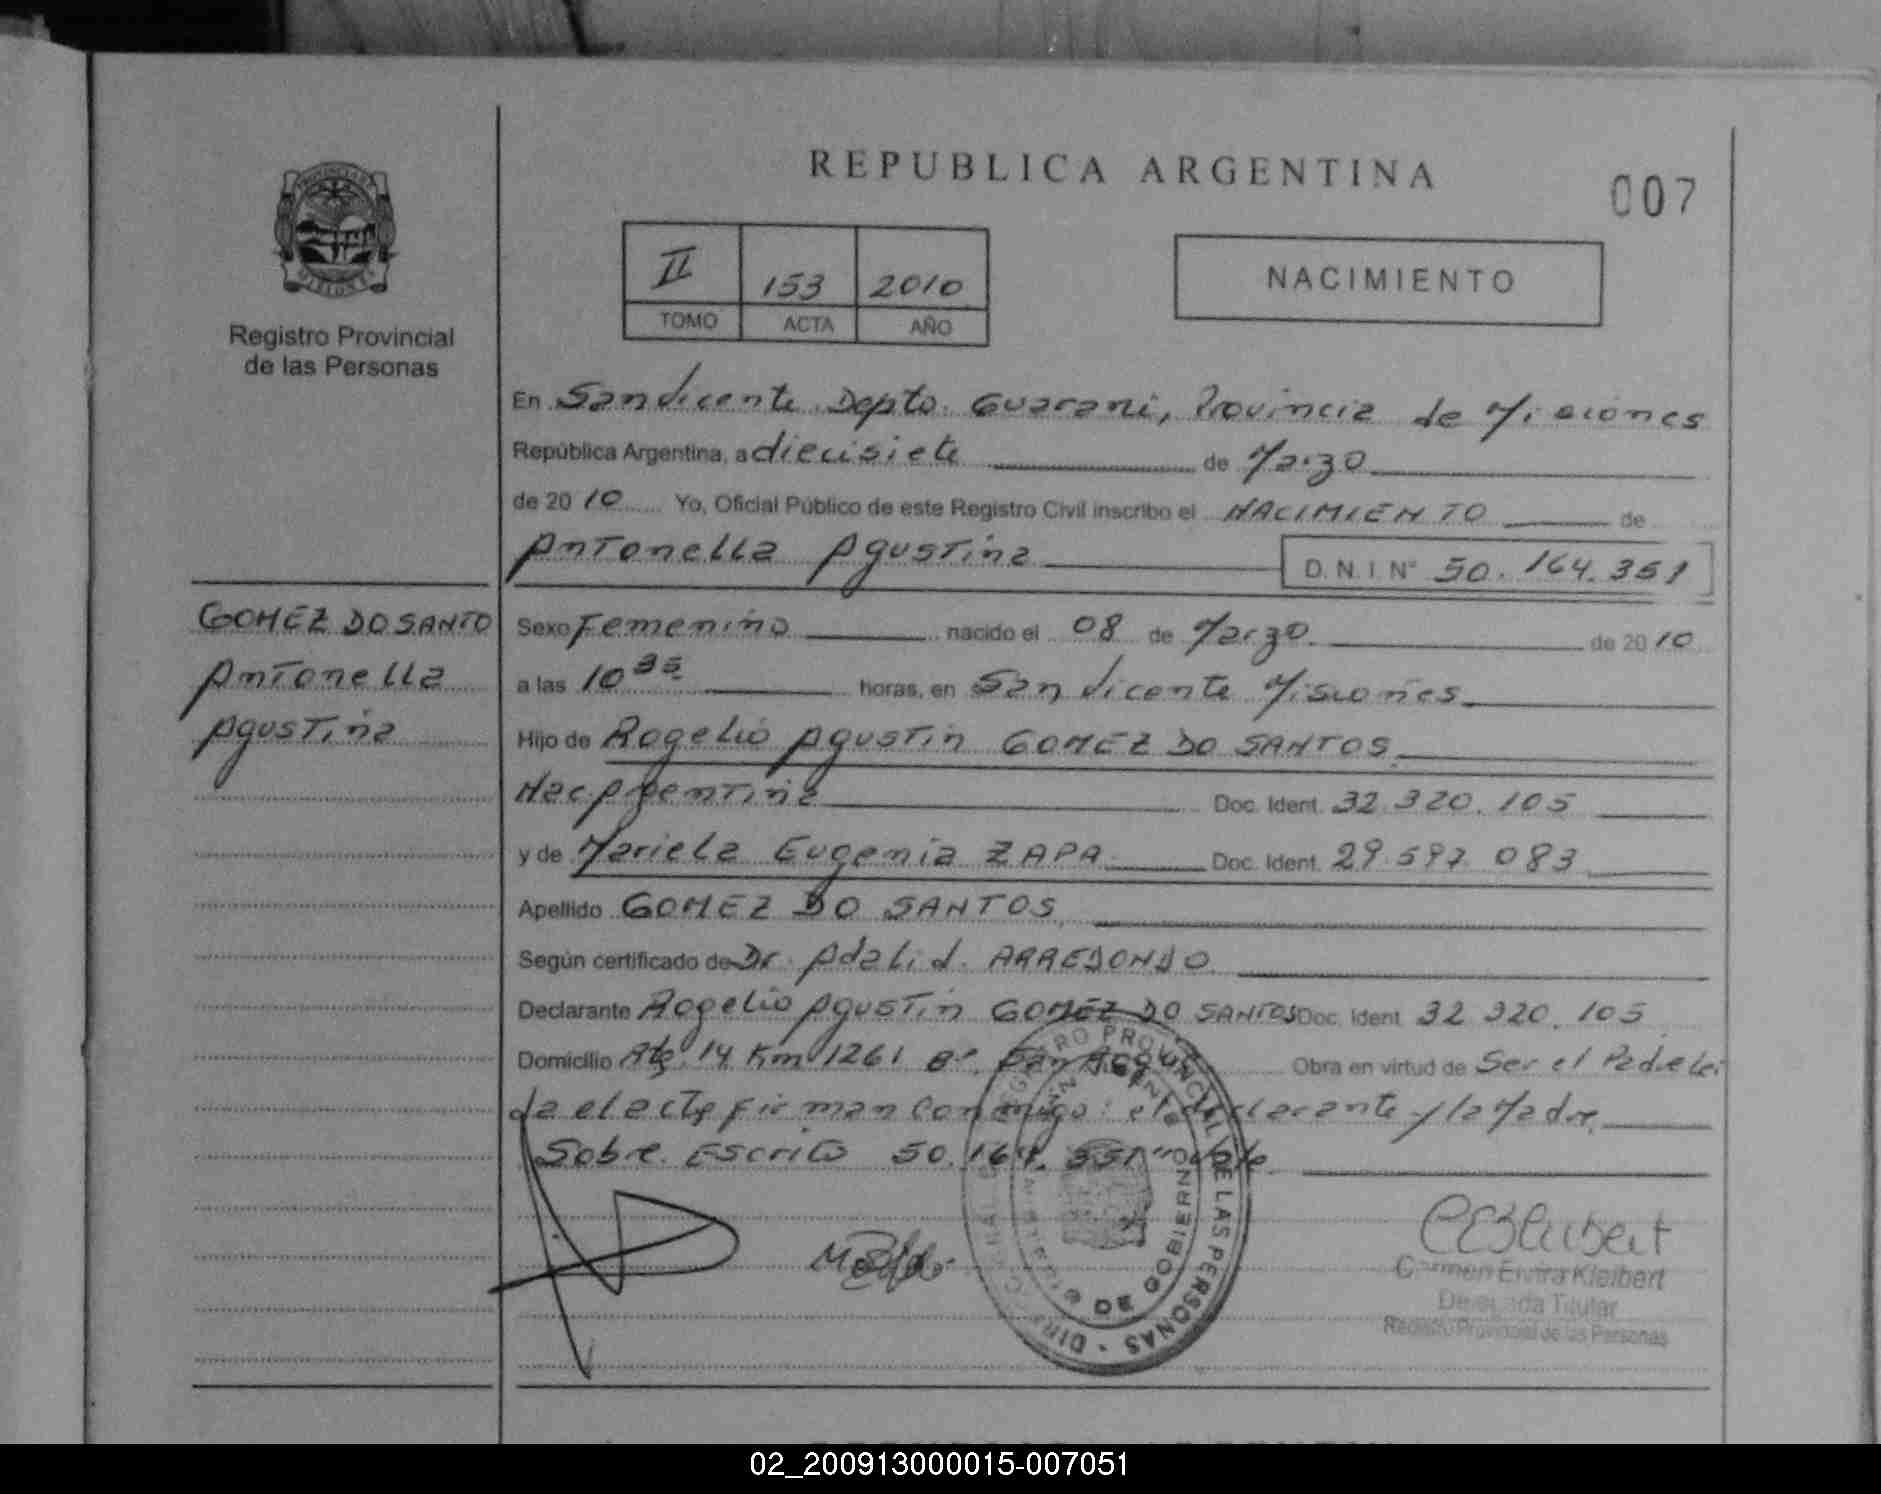 REPUBLICA ARGENTINA
007
Registro Provincial
de las Personas
II 153 2010
TOMO ACTA AÑO
NACIMIENTO
En San Vicente Depto. Guarani, Provincia de Misiones
República Argentina, a diecisiete de Marzo
de 2010 Yo, Oficial Público de este Registro Civil inscribo el NACIMIENTO de
Antonella Agustina D.N.I. Nº 50.164.351
GOMEZ DO SANTO
Antonella
Agustina
Sexo Femenino nacido el 08 de Marzo de 2010
a las 10 35 horas, en San Vicente Misiones
Hijo de Rogelio Agustin GOMEZ DO SANTOS
Nac Argentina Doc. Ident. 32.320.105
y de Mariela Eugenia ZAPA Doc. Ident. 29.597.083
Apellido GOMEZ DO SANTOS
Según certificado de Dr. Adali V. ARREDONDO
Declarante Rogelio Agustin GOMEZ DO SANTOS Doc. Ident. 32.320.105
Domicilio Rta. 14 Km 1261 Bº San Obra en virtud de Ser el Padre Lei
da el acta firman conmigo: el declarante y la Madre
Sobre Escrito 50.164.351 "Vale
REGISTRO PROVINCIAL DE LAS PERSONAS
SAN VICENTE
GOBIERNO
Carmen Elvira Kleibert
Delegada Titular
Registro Provincial de las Personas
02_200913000015-007051